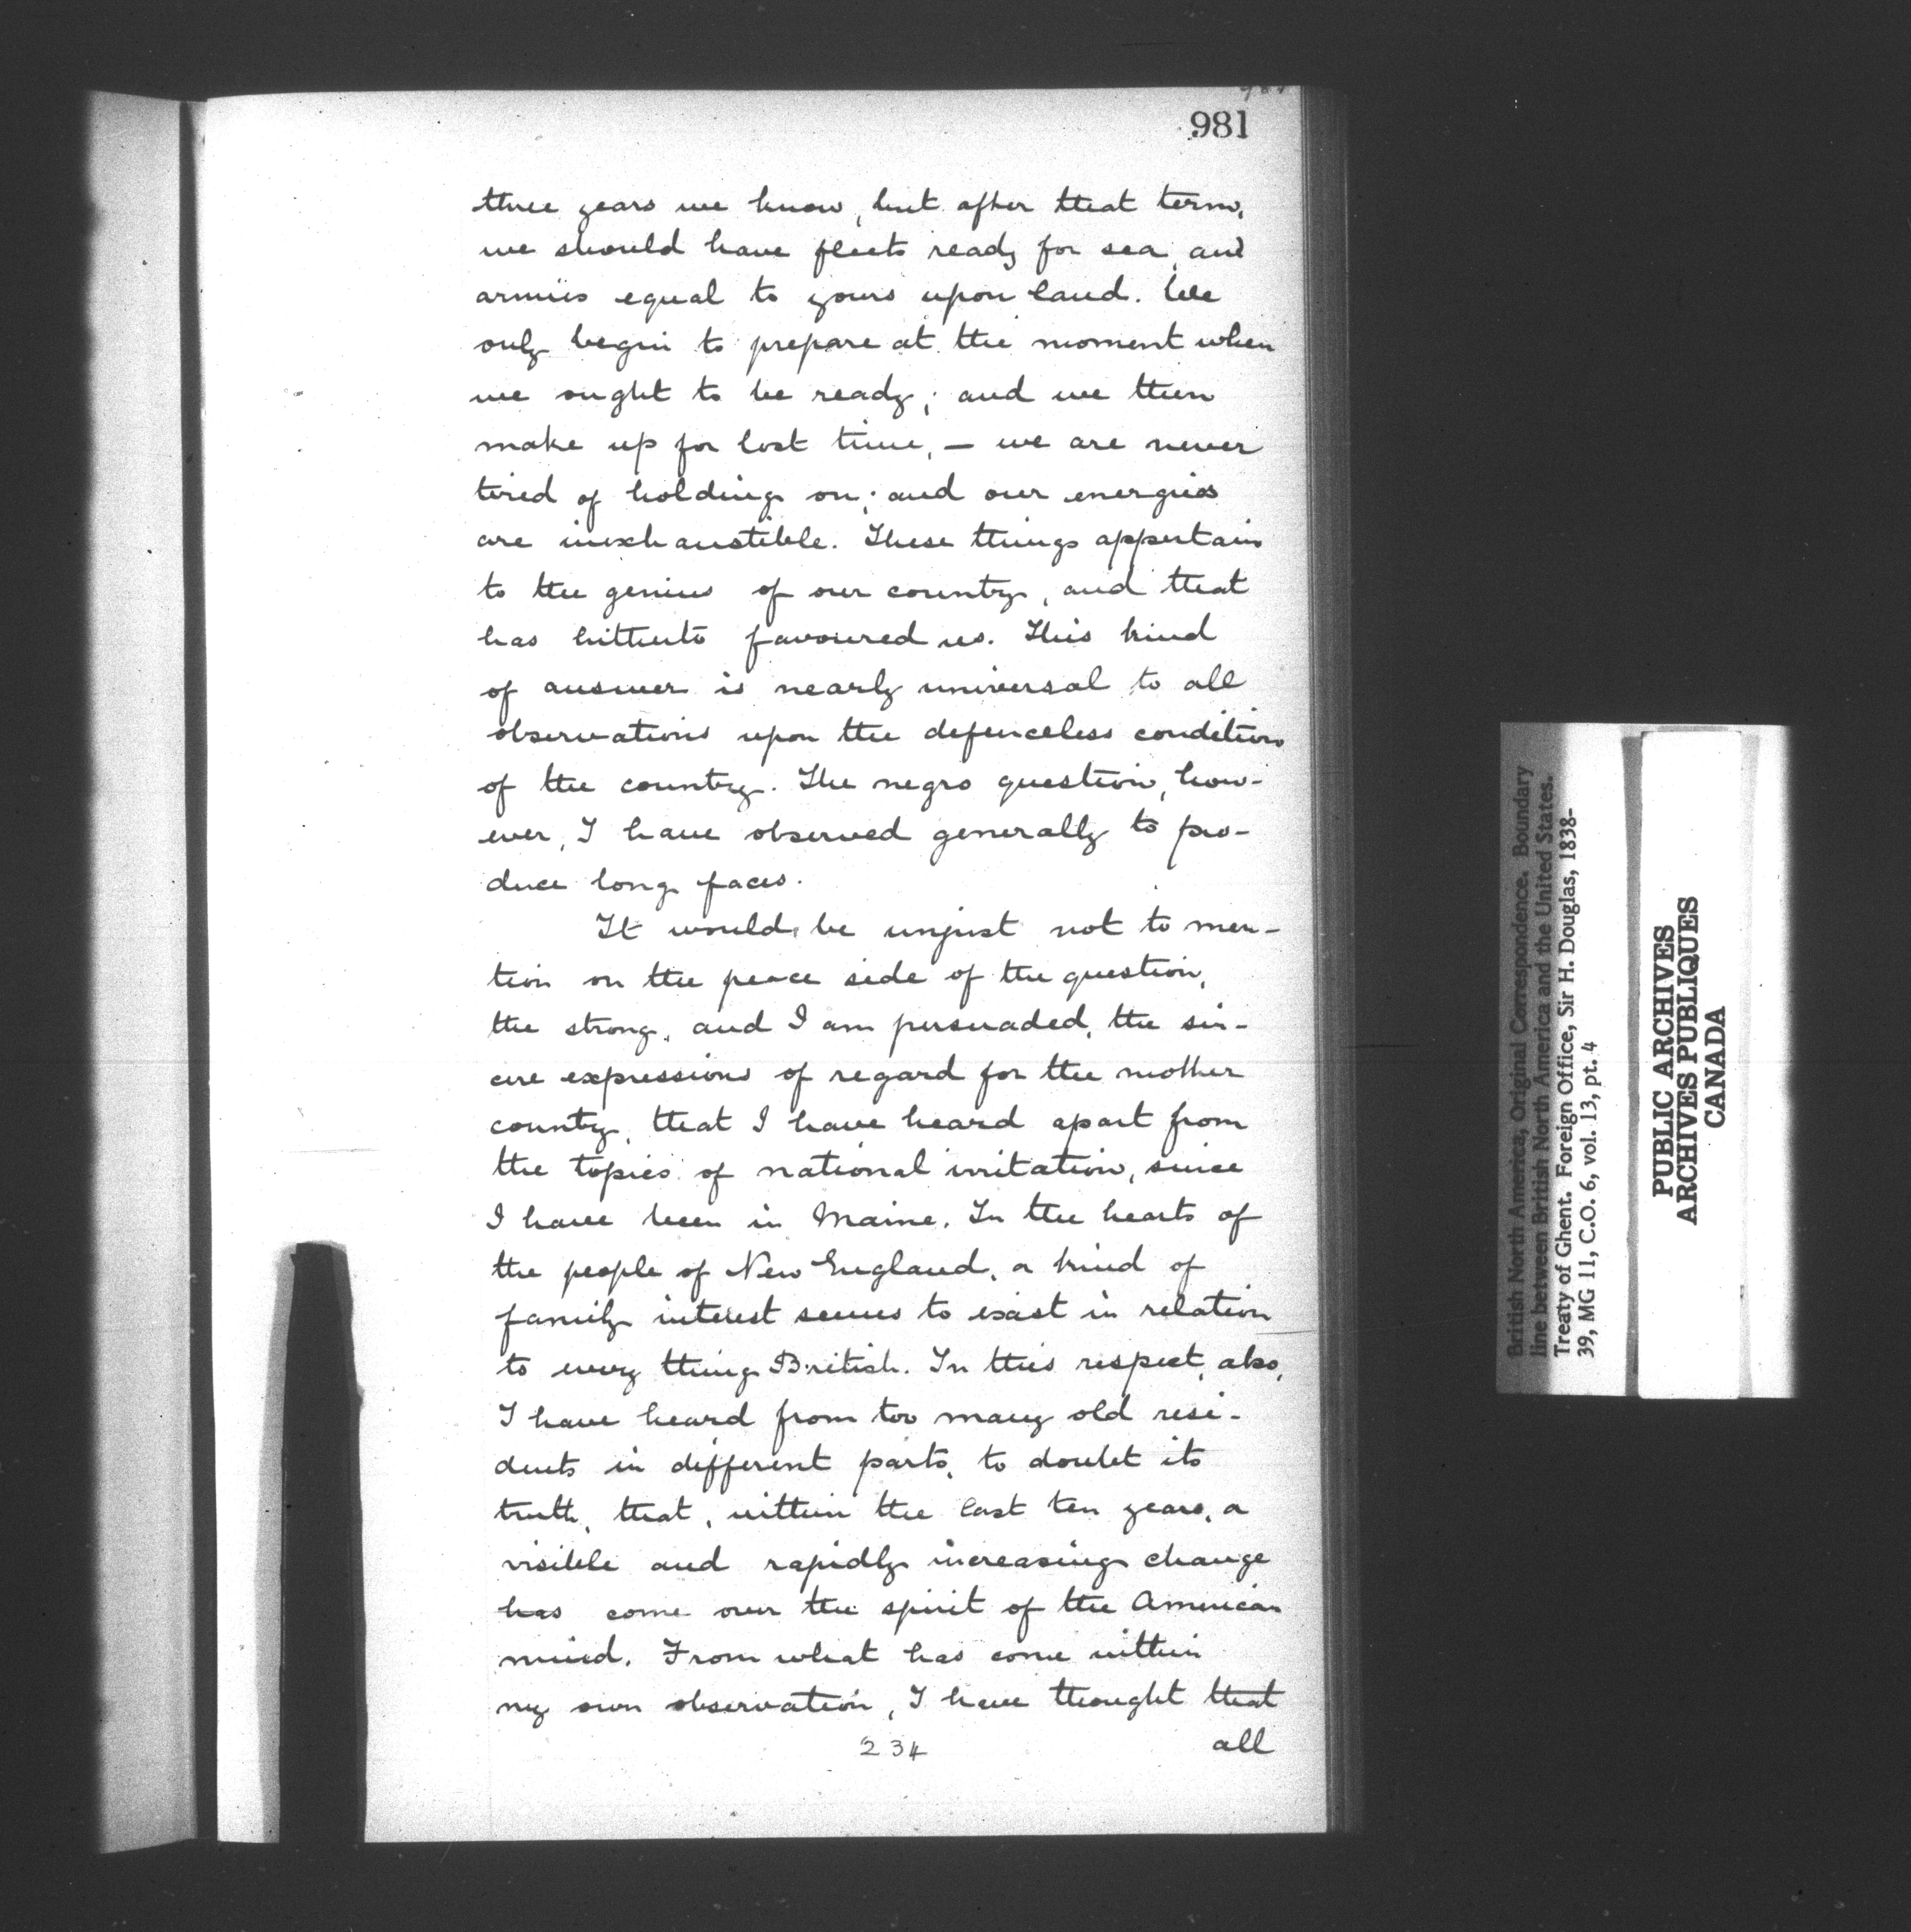 981
three years we know, but after that term,
we should have fleets ready for sea, and
armies equal to yours upon land. We
only begin to prepare at the moment when
we ought to be ready; and we then
make up for lost time, — we are never
tired of holding on; and our energies
are inexhaustible. These things appertain
to the genius of our country, and that
has hitherto favoured us. This kind
of answer is nearly universal to all
observations upon the defenceless condition
of the country. The negro question, how-
ever, I have observed generally to pro-
duce long faces.
It would be unjust not to men-
tion on the peace side of the question,
the strong, and I am persuaded, the sin-
cere expressions of regard for the mother
country, that I have heard apart from
the topics of national irritation, since
I have been in Maine. In the hearts of
the people of New England, a kind of
family interest seems to exist in relation
to every thing British. In this respect, also,
I have heard from too many old resi-
dents in different parts, to doubt its
truth, that, within the last ten years, a
visible and rapidly increasing change
has come over the spirit of the American
mind. From what has come within
my own observation, I have thought that
234 all
British North America, Original Correspondence. Boundary
line between British North America and the United States.
Treaty of Ghent. Foreign Office, Sir H. Douglas, 1838-
39, MG 11, C.O. 6, vol. 13, pt. 4
PUBLIC ARCHIVES
ARCHIVES PUBLIQUES
CANADA